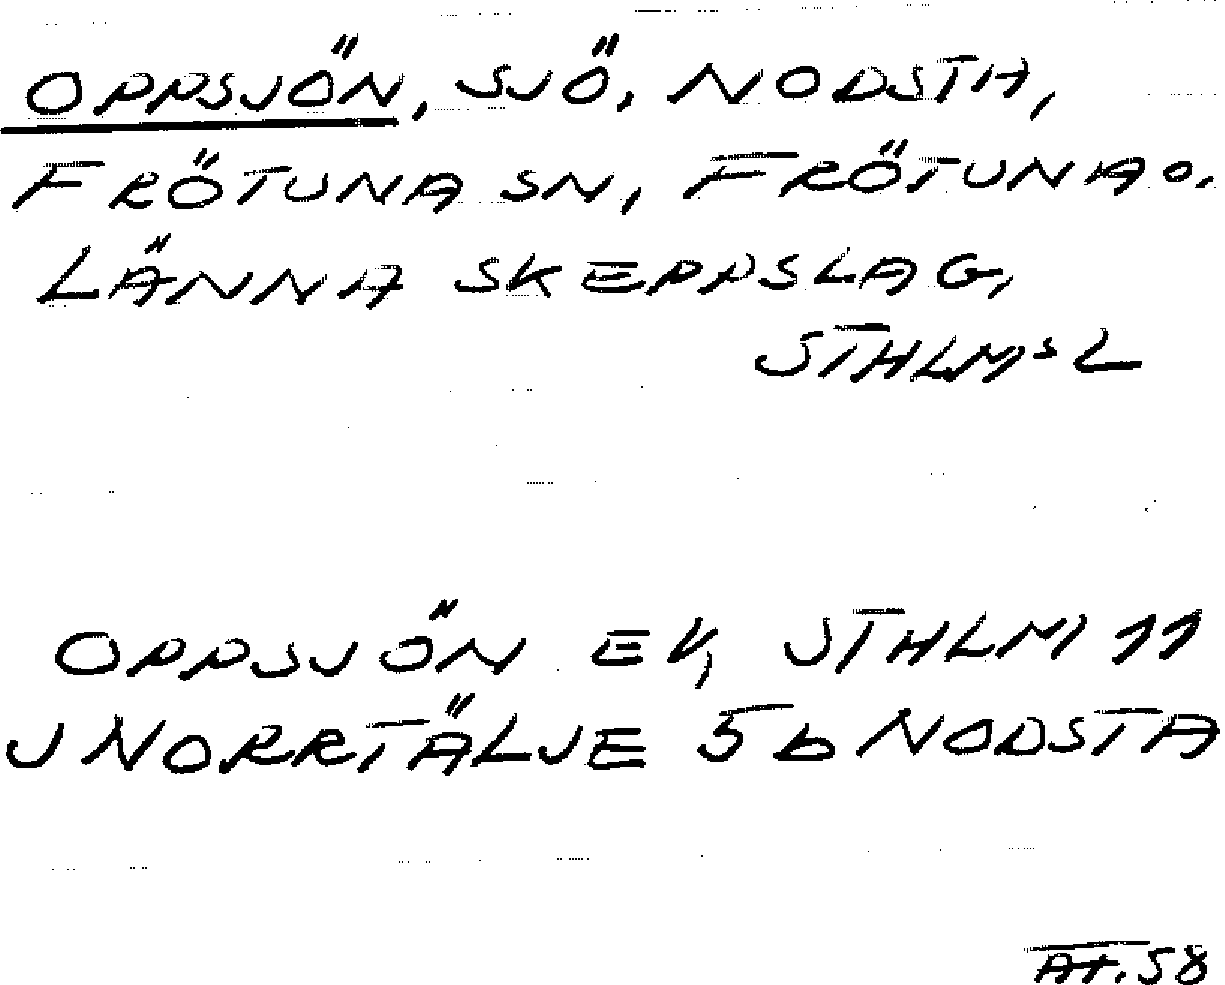 OPPSJÖN, SJÖ, NODSTA,
FRÖTUNA SN, FRÖTUNA O.
LÄNNA SKEPPSLAG,
STHLMS L
OPPSJÖN EK, STHLM 11
J NORRTÄLJE 5b NODSTA
AT. 58